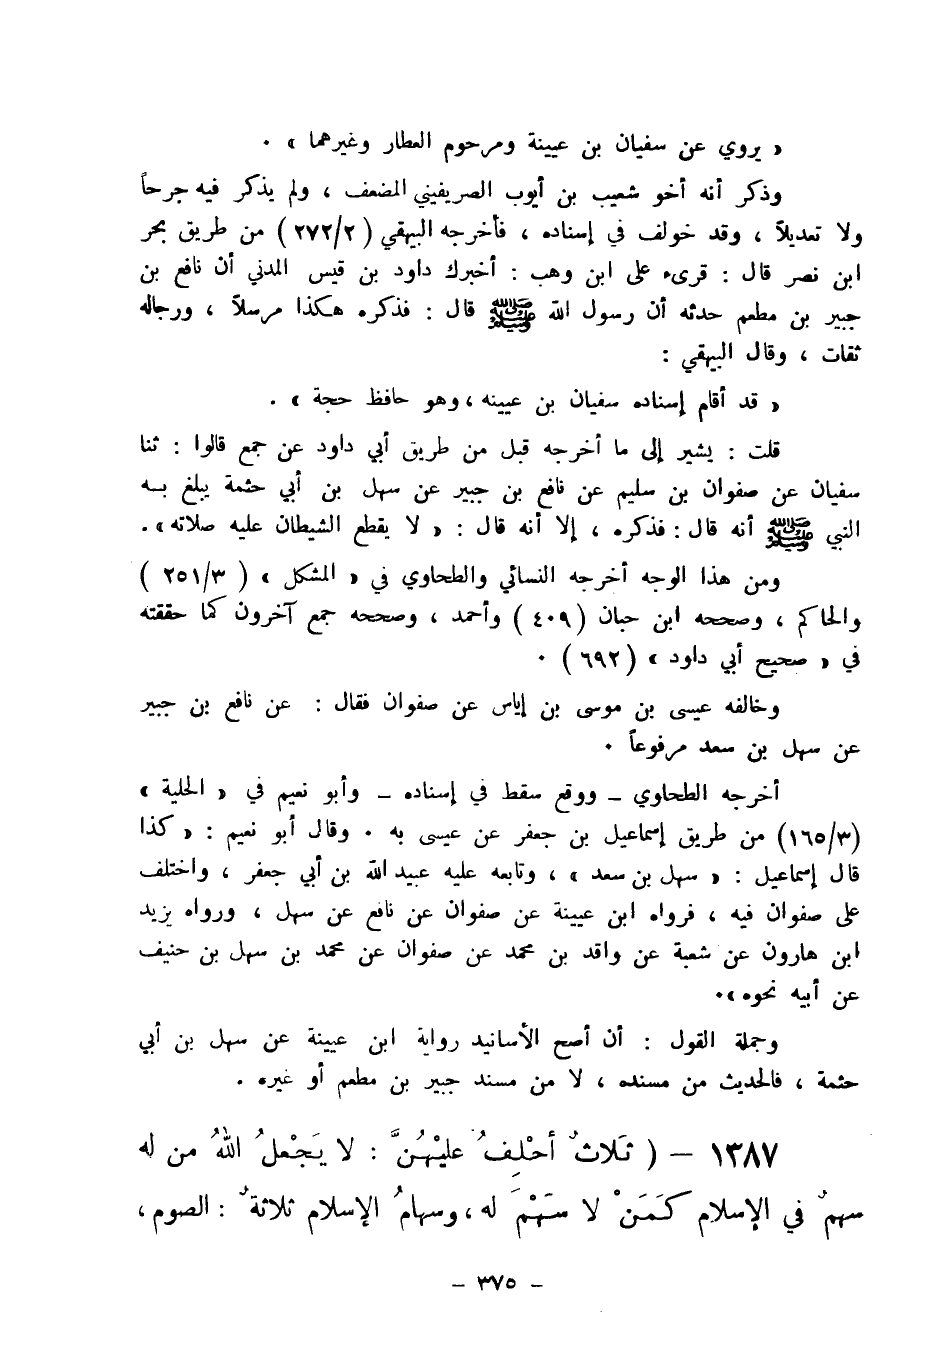 « يروي عن سفيان بن عيينة ومرحوم العطار وغيرهما » .
وذكر أنه أخو شعيب بن أيوب الصريفيني المضعف ، ولم يذكر فيه جرحاً
ولا تعديلاً ، وقد خولف في إسناده ، فأخرجه البيهقي ( ٢٧٢/٢ ) من طريق بحر
ابن نصر قال : قرىء على ابن وهب : أخبرك داود بن قيس المدني أن نافع بن
جبير بن مطعم حدثه أن رسول الله ﷺ قال : فذكره هكذا مرسلاً ، ورجاله
ثقات ، وقال البيهقي :
« قد أقام إسناده سفيان بن عيينه ، وهو حافظ حجة » .
قلت : يشير إلى ما أخرجه قبل من طريق أبي داود عن جمع قالوا : ثنا
سفيان عن صفوان بن سليم عن نافع بن جبير عن سهل بن أبي حثمة يبلغ بـه
النبي ﷺ أنه قال : فذكره ، إلا أنه قال : « لا يقطع الشيطان عليه صلاته » .
ومن هذا الوجه أخرجه النسائي والطحاوي في « المشكل » ( ٢٥١/٣ )
والحاكم ، وصححه ابن حبان ( ٤٠٩ ) وأحمد ، وصححه جمع آخرون كما حققته
في « صحيح أبي داود » ( ٦٩٢ ) .
وخالفه عيسى بن موسى بن إياس عن صفوان فقال : عن نافع بن جبير
عن سهل بن سعد مرفوعاً .
أخرجه الطحاوي ــ ووقع سقط في إسناده ــ وأبو نعيم في « الحلية »
(١٦٥/٣) من طريق إسماعيل بن جعفر عن عيسى به . وقال أبو نعيم : « كذا
قال إسماعيل : « سهل بن سعد » ، وتابعه عليه عبيد الله بن أبي جعفر ، واختلف
على صفوان فيه ، فرواه ابن عيينة عن صفوان عن نافع عن سهل ، ورواه يزيد
ابن هارون عن شعبة عن واقد بن محمد عن صفوان عن محمد بن سهل بن حنيف
عن أبيه نحوه » .
وجملة القول : أن أصح الأسانيد رواية ابن عيينة عن سهل بن أبي
حثمة ، فالحديث من مسنده ، لا من مسند جبير بن مطعم أو غيره .
١٣٨٧ ـ ( ثَلاثٌ أحْلِفُ عليْهُنَّ : لا يَجْعلُ اللهُ من له
سهمٌ في الإسلام كَمَنْ لا سَهْمَ له ، وسهامُ الإسلام ثلاثةٌ : الصوم ،
ـ ٣٧٥ ـ